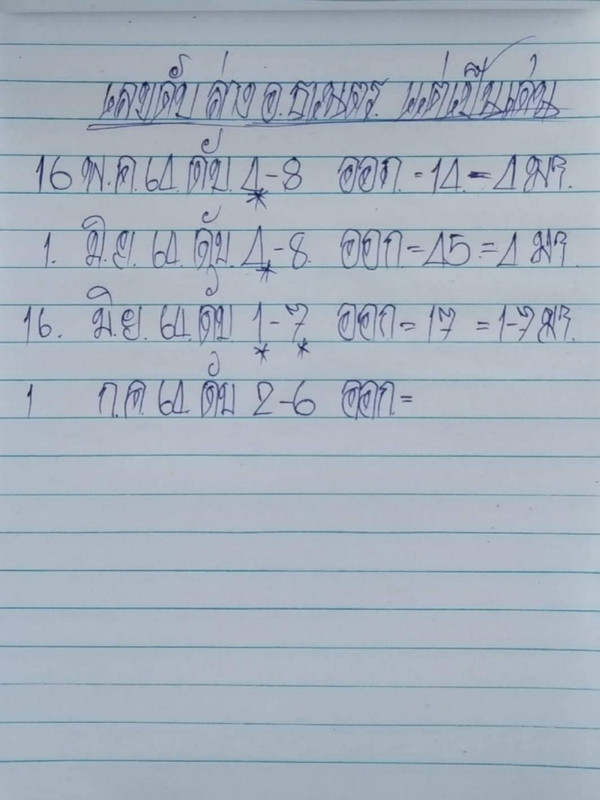 เลขดับ ล่าง อ.ธเนตร. แต่เป็นเด่น
16 พ.ค.64. ดับ. 4-8 ออก. = 14. = 4 มา.
1. มิ.ย. 64. ดับ. 4-8. ออก. = 45. = 4 มา
16. มิ.ย. 64. ดับ 1-7 ออก. = 17 = 1-7 มา.
1 ก.ค. 64. ดับ 2-6 ออก. =